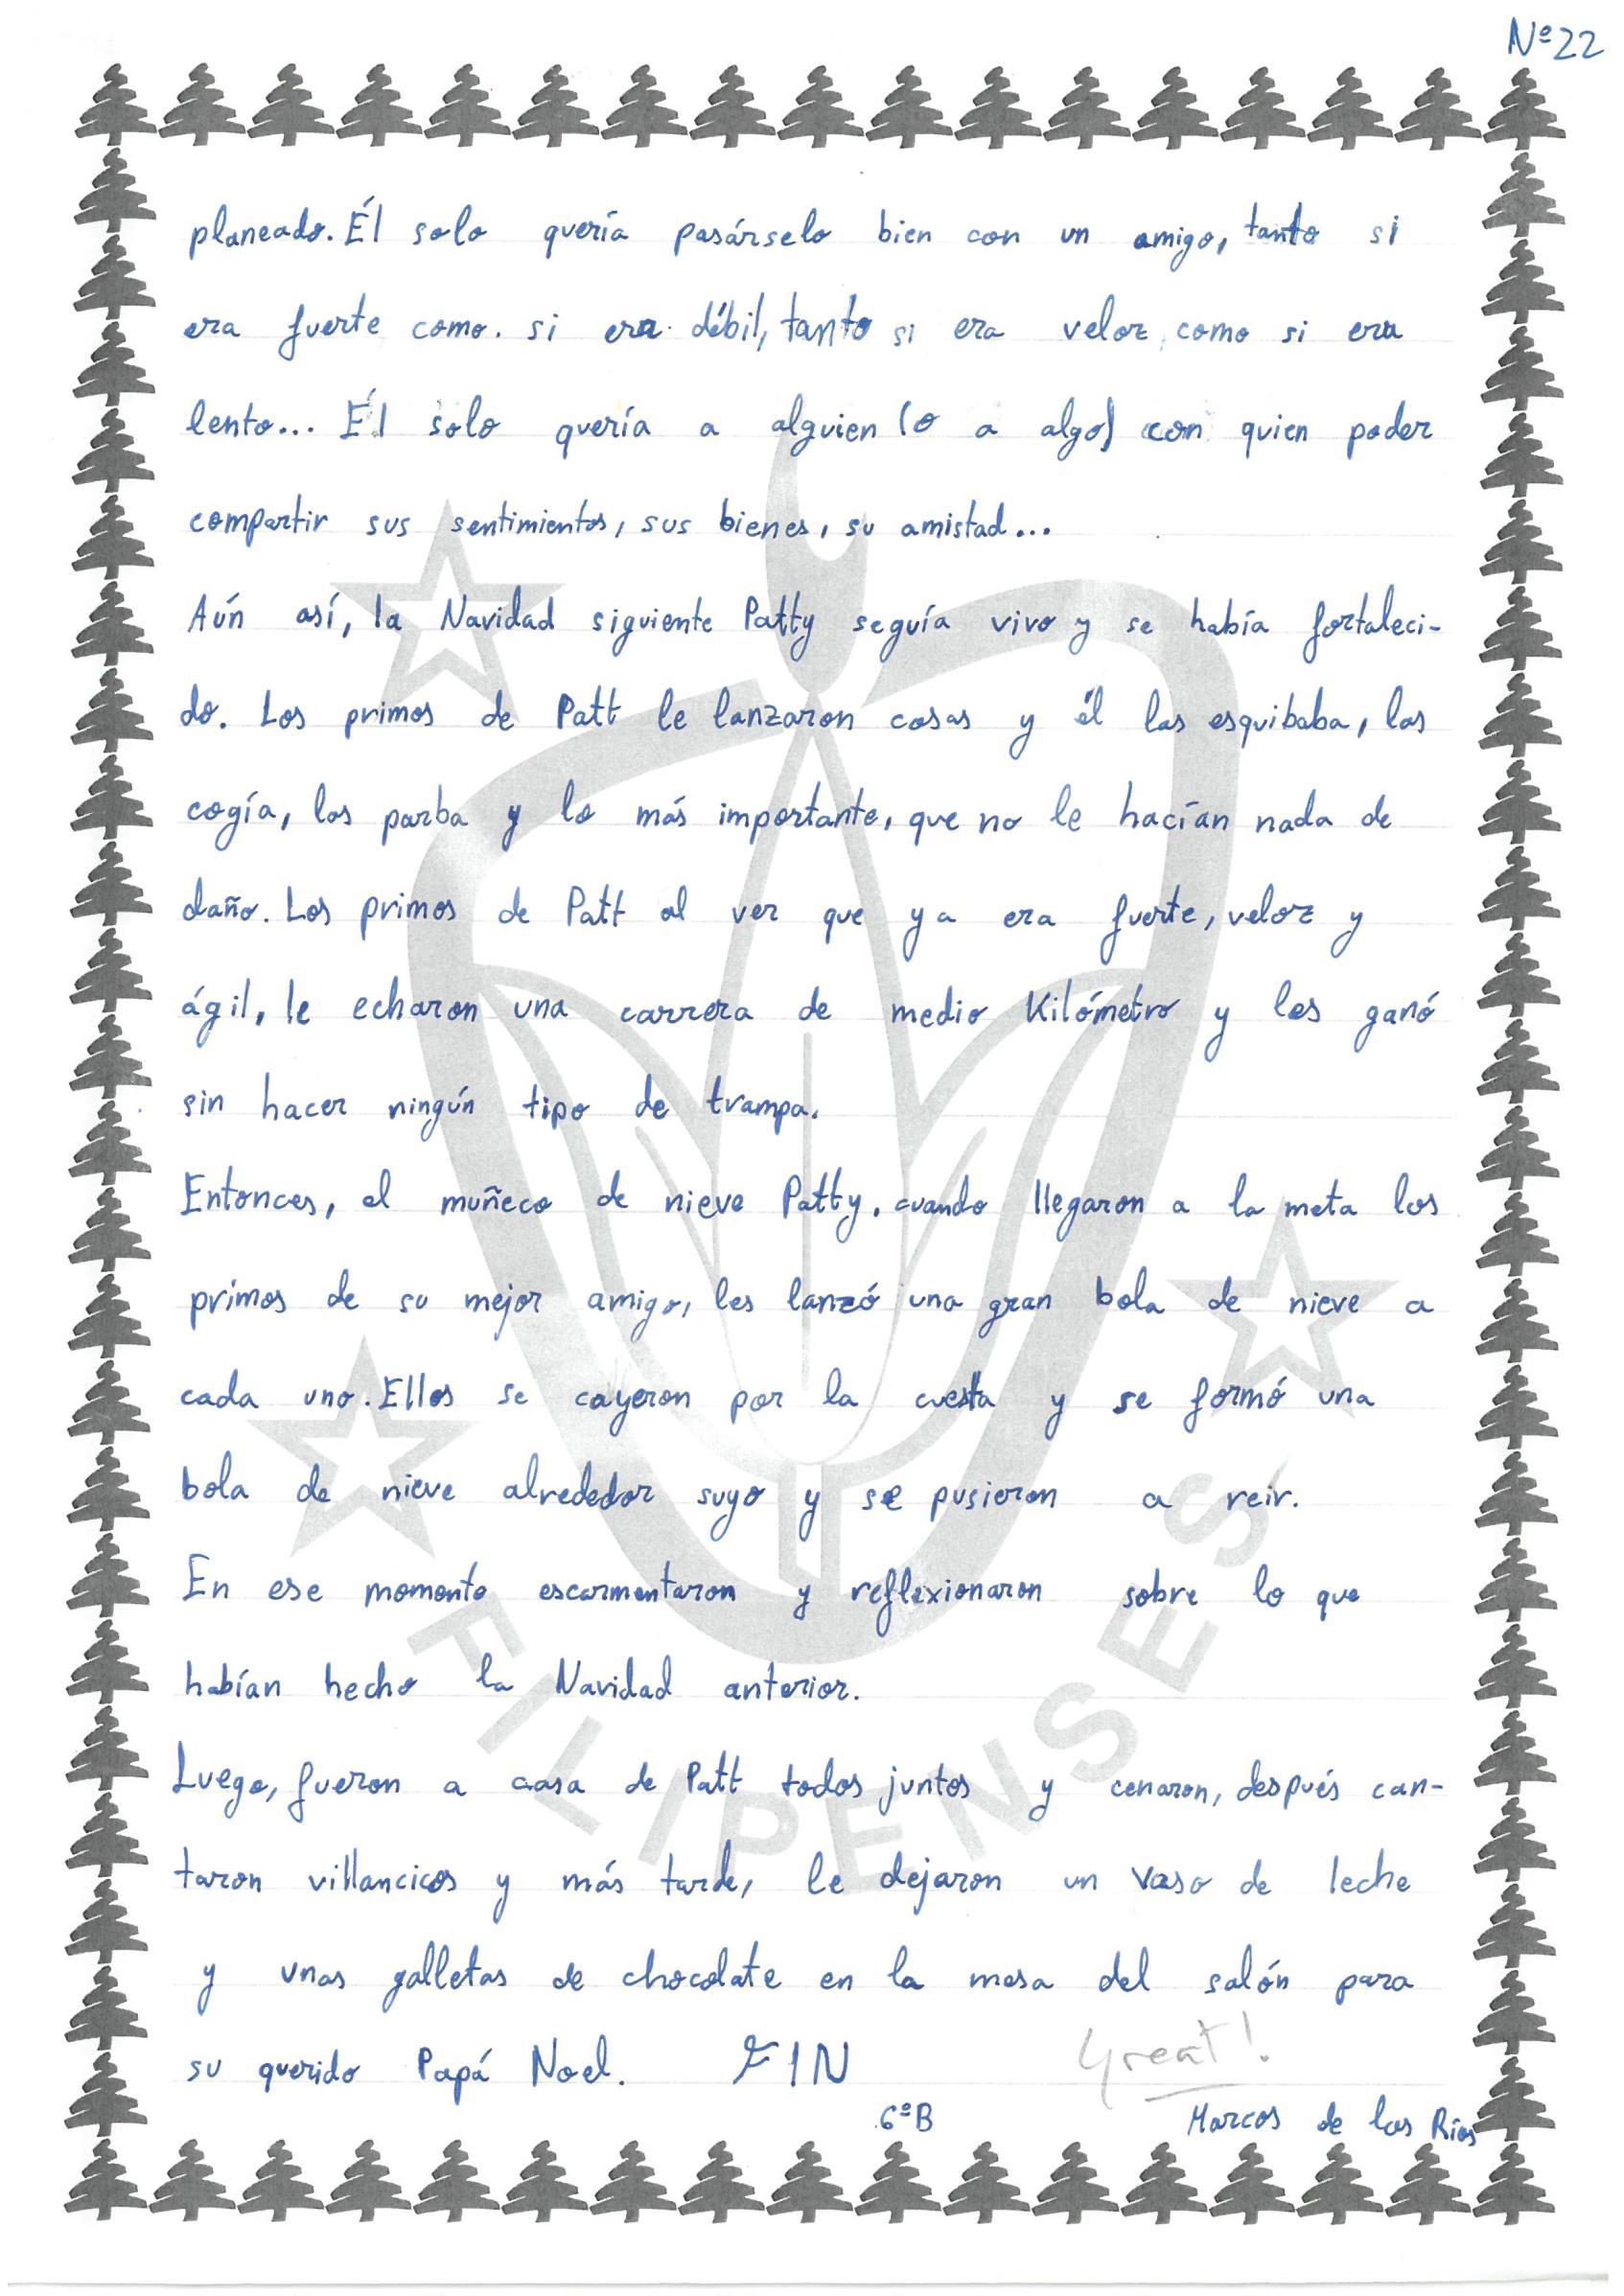 Nº22
planeado. Él solo quería pasárselo bien con un amigo, tanto si
era fuerte como. si era débil, tanto si era veloz, como si era
lento... Él solo quería a alguien (o a algo) con quien poder
compartir sus sentimientos, sus bienes, su amistad...
Aún así, la Navidad siguiente Patty seguía vivo y se había fortaleci-
do. Los primos de Patt le lanzaron cosas y él las esquibaba, las
cogía, las parba y lo más importante, que no le hacían nada de
daño. Los primos de Patt al ver que ya era fuerte, veloz y
ágil, le echaron una carrera de medio Kilómetro y les ganó
sin hacer ningún tipo de trampa.
Entonces, el muñeco de nieve Patty, cuando llegaron a la meta los
primos de su mejor amigo, les lanzó una gran bola de nieve a
cada uno. Ellos se cayeron por la cuesta y se formó una
bola de nieve alrededor suyo y se pusieron a reir.
En ese momento escarmentaron y reflexionaron sobre lo que
habían hecho la Navidad anterior.
Luego, fueron a casa de Patt todos juntos y cenaron, después can-
taron villancicos y más tarde, le dejaron un vaso de leche
y unas galletas de chocolate en la mesa del salón para
su querido Papá Noel. FIN
Great!
6ºB Marcos de las Rías
FILIPENSES